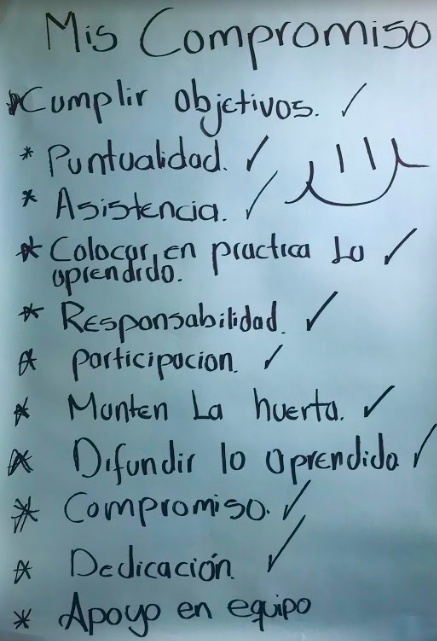 Mis Compromiso
* Cumplir objetivos. ✓
* Puntualidad. ✓
* Asistencia. ✓
* Colocar en practica Lo ✓
aprendido.
* Responsabilidad. ✓
* participacion. ✓
* Manten La huerta. ✓
* Difundir lo aprendido ✓
* Compromiso. ✓
* Dedicación. ✓
* Apoyo en equipo